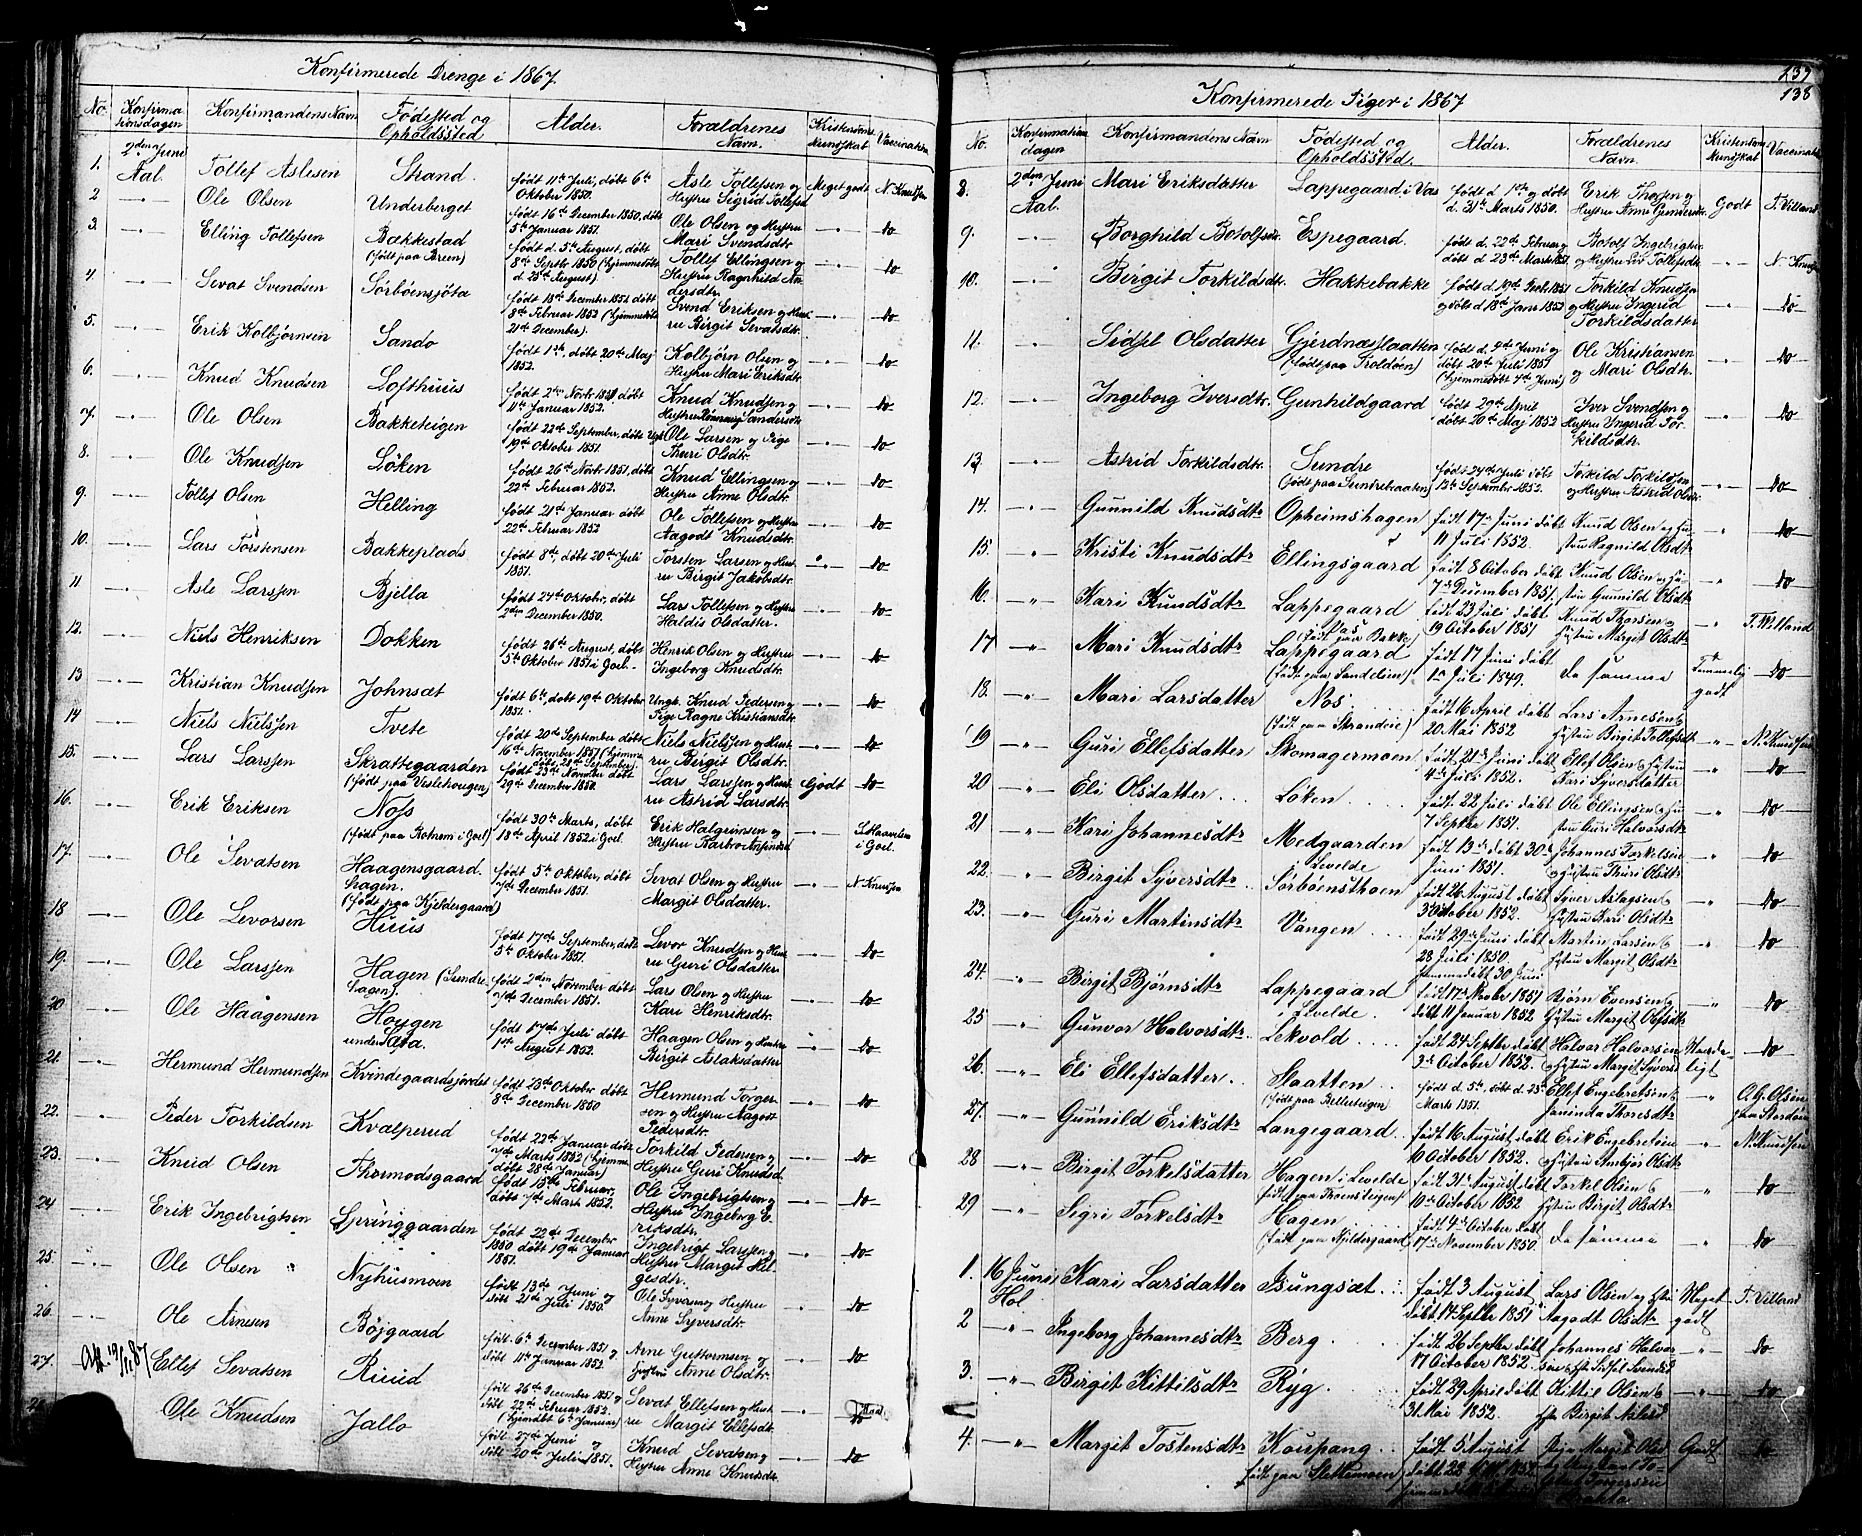 Konfirmerede Drenge i 1867.
No. Konfirmationsdagen Konfirmandens Navn Fødested og Opholdssted Alder. Forældrenes Navn. Kristendoms Kundskab Vaccination
1. 2den Juni Aal. Tollef Aslesen Strand. født 11te Juli, døbt 6te Oktober 1850. Asle Tollefsen og Hustru Sigrid Tollefsd Meget godt N. Knudsen
2 Ole Olsen Underberget født 16de December 1850, døbt 5te Januar 1851. Ole Olsen og Hustru Mari Svendsdtr. do
3. Elling Tollefsen Bækkestad (født paa Breen) født d. 5te August, døbt 8de Septbr 1850 (hjemmedøbt d. 25de August). Tollef Ellingsen og Hustru Ragnhild Andersdtr. do
4. Sevat Svendsen Sørbøensjøta født 18de December 1851 døbt 8de Februar 1852 (hjemmedøbt 21de December). Svend Eriksen og Hustru Birgit Sevatsdtr. do
5. Erik Kolbjørnsen Sando født 1ste, døbt 20de Maj 1852. Kolbjörn Olsen og Hustru Mari Eriksdtr. do
6. Knud Knudsen Lofthuus født 2den Novbr 1851 døbt 11te Januar 1852. Knud Knudsen og Hustru Rønnaug Sandersdtr do
7. Ole Olsen Bakketeigen født 22de September, døbt 19de Oktober 1851. Ugt. Ole Larsen og Pige Thuri Olsdtr. do
8. Ole Knudsen Løken født 26de Novbr 1851, døbt 22de Februar 1852. Knud Ellingsen og Hustru Anne Olsdtr. do
9. Tollef Olsen Helling født 21de Januar døbt 22de Februar 1852 Ole Tollefsen og Hustru Aagodt Knudsdtr. do
10. Lars Torstensen Bakkeplads født 8de, døbt 20de Juli 1851. Torsten Larsen og Hustru Birgit Jakobsdtr. do
11 Asle Larssen Bjella født 24de Oktobr, døbt 2den December 1850. Lars Tollefsen og Haldis Olsdatter. do
12. Niels Henriksen Dokken født 26de August, døbt 5te Oktober 1851 i Goel. Henrik Olsen og Hustru Ingeborg Knudsdtr. do
13 Kristian Knudsen Johnsæt født 6te, døbt 19de Oktober 1851. Ungk. Knud Pedersen og Pige Ragne Kristiansdtr. do
14 Niels Nielsen Tvete født 20de September døbt 16de November 1851 (hjemmedøbt 28de September). Niels Nielsen og Hustru Birgit Olsdtr. do
15. Lars Larssen Skrattegaarden (født paa Veslehougen) født 23de November døbt 29de December 1850. Lars Larssen og Hustru Astrid Larsdtr. Godt do
16. Erik Eriksen Nos (født paa Rotnem i Goel) født 30te Marts, døbt 18de April 1852 i Goel. Erik Halgrimsen og Hustru Barbro i Goel.
17. Ole Sevatsen Haagensgaardhagen. (født paa Kjeldergaard) født 5te Oktober, døbt 7de December 1851. Sevat Olsen og Hustru Margit Olsdatter. N Knudsen
18 Ole Levorsen Huus født 17de September, døbt 5te Oktober 1851. Levor Knudsen og Hustru Guri Olsdatter do
19. Ole Larssen Hagen (Sundrehagen) født 2den November døbt 7de December 1851. Lars Olsen og Hustru Kari Henriksdtr. do
20 Ole Haagensen Hougen under Aga. født 17de Juli døbt 1ste August 1852. Haagen Olsen og Hustru Birgit Aslaksdatter do
21. Hermund Hermundsen Kvindegaardsjordet født 23de Oktobr døbt 8de December 1850 Hermund Torgersen og Hustru Aagodt Pedersdtr. do
22. Peder Torkildsen Kvælperud født 22de Januar døbt 7de Marts 1852 (hjemmedøbt 28de Januar) Torkild Pedersen og Hustru Guri Knudsd. do
23. Knud Olsen Thormodsgaard født 15de Februar, døbt 7de Marts 1852. Ole Ingebrigtsen og Hustru Ingeborg Eriksdtr. do
24 Erik Ingebrigtsen Springgaarden født 22de December 1850 døbt 19de Januar 1851. Ingebrigt Larssen og Hustru Margit Helgesdtr. do
25. Ole Olsen Nyhusmoen født 13de Juni og døbt 21de Juli 1850. Ole Syversen og Hustru Anne Syversdtr. do
26. Ole Arnesen Bøjgaard født 6te December 1851 og døbt 11te Januar 1852. Arne Guttormsen og Hustru Anne Olsdtr. do
27. Ellef Sevatsen Ruud født 26de December 1851 og døbt 22de Februar 1852. (hjemdøbt 6te Januar) Sevat Ellefsen og Hustru Margit Ellefsdtr. do
Ole Knudsen Jallo født 27de Juni og døbt 20de Juli 1851. Knud Sevatsen og Hustru Anne Knudsdtr. do
137
138
Konfirmerede Piger i 1867
No. Konfirmationsdagen Konfirmandens Navn Fødested og Opholdssted. Alder. Forældrenes Navn. Kristendoms Kundskab Vaccination
8. 2den Juni Aal. Mari Eriksdatter Lappegaard i Vas født d. 1ste og døbt d. 31te Marts 1850. Erik Thosen og Hustru Anne Gundersdtr Godt T. Villand
9. Borghild Botolfsdtr. Espegaard. født d. 22de Februar og døbt d. 23de Marts Botolf Ingebrigtsen og Hustru Liv Tollefsdtr N. Knudsen
10. Birgit Torkildsdtr. Hakkebakke født d. 19de Decbr 1851 og døbt d 18de Janr 1852 Torkild Knudsen og Hustru Ingerid Torkildsdatter do
11. Sidsel Olsdatter Gjerdnæsslaatten (født paa Troldøen) født d. 2den Juni og døbt 20de Juli 1851 (hjemmedøbt 4de Juni) Ole Kristiansen og Mari Olsdtr. do
12. Ingeborg Iversdtr. Gunhildgaard født 29de April døbt 20de Maj 1852 Iver Svendsen og Hustru Ingerid Torkildsdtr. do
13. Astrid Torkildsdtr. Sundre (født paa Sundrebraaten) født 24de Juli døbt 12te September 1852. Torkild Torkildsen og Hustru Astrid Olsdtr do
14. Gunnild Knudsdtr Opheimshagen født 17de Juni døbt 11 Juli 1852. Knud Olsen og Hustru Ragnild Olsdtr do
15. Kristi Knudsdtr Ellingsgaard født 8 October døbt 7de December 1851. Knud Olsen og Hustru Gunnild Olsdtr do
16. Kari Knudsdtr Lappegaard Vas (født paa Bakke) født 23 Juli døbt 19 October 1851 Knud Thorsen og Hustru Margit Olsdtr T. Villand
17 Mari Knudsdtr Lappegaard (født paa Sandeløin) født 17 Juni døbt 1ste Juli 1849. de samme Temmelig godt do
18. Mari Larsdatter Nos (født paa Strandeie) født 16 April døbt 20 Mai 1852 Lars Arnesen & Hustru Birgit Tollefsdtr N. Knudsen
19 Guri Ellefsdatter Skomagermoen født 21de Juni døbt 4de Juli 1852. Ellef Olsen & Hustru Kari Syversdatter do
20 Eli Olsdatter Løken født 22 Juli døbt 7 Septbr 1851. Ole Ellingsen & Hustru Guri Halvorsdtr do
21 Kari Johannesdtr Medgaarden i Levelde født 13de døbt 30te Juni 1851. Johannes Torkelsen og Hustru Thuri Olsdtr do
22. Birgit Syversdtr. Sørbøensthoen født 26 August døbt 3 October 1852. Syver Aslagsen & Hustru Kari Olsdtr do
23. Guri Martinsdtr Vangen født 29de Juni døbt 28 Juli 1850. hjemmedøbt 30 Juni Martin Larsen & Hustru Margit Olsdtr do
24. Birgit Bjørnsdtr Lappegaard i Levelde. født 17de Novbr 1851 døbt 11 Januar 1852. Bjørn Evensen & Hustru Margit Olsdtr do
25 Gunvor Halvorsdtr. Lekvold født 24 Septbr døbt 3de October 1852. Halvor Halvorsen og Hustru Margit Syversd Maadeligt do
26. Eli Ellefsdatter. Slaatten (født paa Bellerteigen) født d. 5te, døbt d. 25de Marts 1851. Ellef Engebretsen & Janinda Thoresdtr O. G. Olsen paa Stordøen
27. Gunnild Eriksdtr Langegaard. født 16 August døbt 10 October 1852. Erik Engebretsen og Hustru Ambjør Olsdtr N. Knudsen
28 Birgit Torkelsdatter Hagen i Levelde (født paa Troensteigen) født 31te August døbt 10de October 1852 Torkel Olsen & Hustru Birgit Olsdtr do
29 Sigri Torkelsdtr Hagen (født paa Kjildergaard) født 4de October døbt 17de November 1850. de samme do
1. 16 Juni Hol Kari Larsdatter Isungsæt født 3 August døbt 14 Septbr 1851 Lars Olsen og Hustru Aagodt Olsdtr Meget godt T. Villand
2 Ingeborg Johannesdtr Berg født 26 Septbr døbt 17 October 1852. Johannes Halvorsen & Hustru Sidsel Svendsd do
3. Birgit Kittilsdtr Ryg født 29 April døbt 31 Mai 1852. Kittil Olsen & Hustru Birgit Nilsd do
4. Margit Tostensdtr Kaupang født paa Slettemoen født 5 August døbt 22 1852 Pige Margit Olsd Godt do